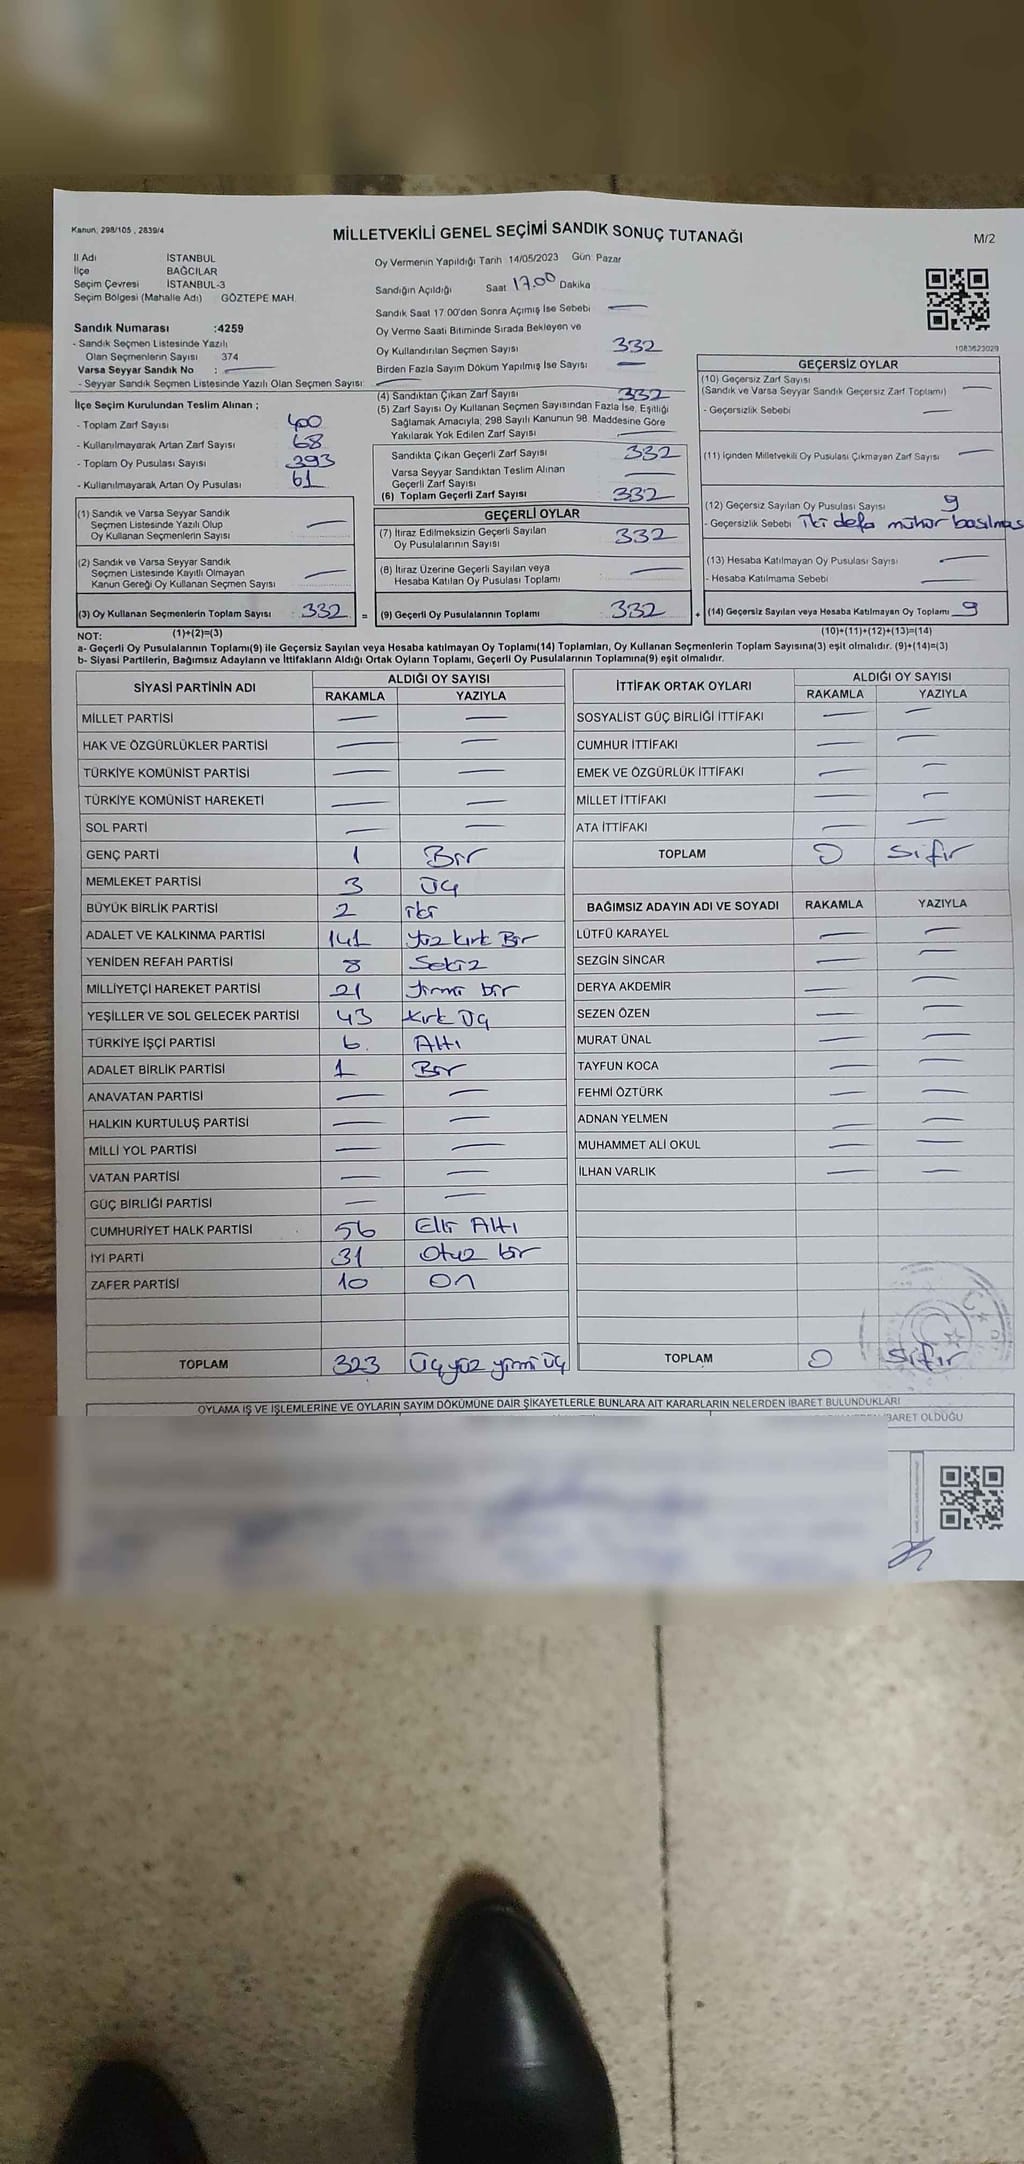 Kanun, 298/105 , 2839/4
MİLLETVEKİLİ GENEL SEÇİMİ SANDIK SONUÇ TUTANAĞI
M/2
İl Adı İSTANBUL
İlçe BAĞCILAR
Seçim Çevresi İSTANBUL-3
Seçim Bölgesi (Mahalle Adı) GÖZTEPE MAH.
Sandık Numarası :4259
- Sandık Seçmen Listesinde Yazılı
Olan Seçmenlerin Sayısı 374
Varsa Seyyar Sandık No : —
- Seyyar Sandık Seçmen Listesinde Yazılı Olan Seçmen Sayısı: —
İlçe Seçim Kurulundan Teslim Alınan ;
- Toplam Zarf Sayısı 400
- Kullanılmayarak Artan Zarf Sayısı 68
- Toplam Oy Pusulası Sayısı 393
- Kullanılmayarak Artan Oy Pusulası 61
(1) Sandık ve Varsa Seyyar Sandık
Seçmen Listesinde Yazılı Olup
Oy Kullanan Seçmenlerin Sayısı —
(2) Sandık ve Varsa Seyyar Sandık
Seçmen Listesinde Kayıtlı Olmayan
Kanun Gereği Oy Kullanan Seçmen Sayısı —
(3) Oy Kullanan Seçmenlerin Toplam Sayısı : 332 =
Oy Vermenin Yapıldığı Tarih 14/05/2023 Gün Pazar
Sandığın Açıldığı Saat 17.00 Dakika
Sandık Saat 17:00'den Sonra Açımış İse Sebebi —
Oy Verme Saati Bitiminde Sırada Bekleyen ve
Oy Kullandırılan Seçmen Sayısı 332
Birden Fazla Sayım Döküm Yapılmış İse Sayısı —
(4) Sandıktan Çıkan Zarf Sayısı 332
(5) Zarf Sayısı Oy Kullanan Seçmen Sayısından Fazla İse, Eşitliği
Sağlamak Amacıyla, 298 Sayılı Kanunun 98. Maddesine Göre
Yakılarak Yok Edilen Zarf Sayısı —
Sandıkta Çıkan Geçerli Zarf Sayısı 332
Varsa Seyyar Sandıktan Teslim Alınan
Geçerli Zarf Sayısı —
(6) Toplam Geçerli Zarf Sayısı 332
GEÇERLİ OYLAR
(7) İtiraz Edilmeksizin Geçerli Sayılan
Oy Pusulalarının Sayısı 332
(8) İtiraz Üzerine Geçerli Sayılan veya
Hesaba Katılan Oy Pusulası Toplamı —
(9) Geçerli Oy Pusulalarının Toplamı 332 +
1083623029
GEÇERSİZ OYLAR
(10) Geçersiz Zarf Sayısı
(Sandık ve Varsa Seyyar Sandık Geçersiz Zarf Toplamı) —
- Geçersizlik Sebebi —
(11) İçinden Milletvekili Oy Pusulası Çıkmayan Zarf Sayısı —
(12) Geçersiz Sayılan Oy Pusulası Sayısı 9
- Geçersizlik Sebebi İki defa mühür basılması
(13) Hesaba Katılmayan Oy Pusulası Sayısı —
- Hesaba Katılmama Sebebi —
(14) Geçersiz Sayılan veya Hesaba Katılmayan Oy Toplamı 9
NOT: (1)+(2)=(3) (10)+(11)+(12)+(13)=(14)
a- Geçerli Oy Pusulalarının Toplamı(9) ile Geçersiz Sayılan veya Hesaba katılmayan Oy Toplamı(14) Toplamları, Oy Kullanan Seçmenlerin Toplam Sayısına(3) eşit olmalıdır. (9)+(14)=(3)
b- Siyasi Partilerin, Bağımsız Adayların ve İttifakların Aldığı Ortak Oyların Toplamı, Geçerli Oy Pusulalarının Toplamına(9) eşit olmalıdır.
SİYASİ PARTİNİN ADI ALDIĞI OY SAYISI
RAKAMLA YAZIYLA
MİLLET PARTİSİ — —
HAK VE ÖZGÜRLÜKLER PARTİSİ — —
TÜRKİYE KOMÜNİST PARTİSİ — —
TÜRKİYE KOMÜNİST HAREKETİ — —
SOL PARTİ — —
GENÇ PARTİ 1 Bir
MEMLEKET PARTİSİ 3 Üç
BÜYÜK BİRLİK PARTİSİ 2 iki
ADALET VE KALKINMA PARTİSİ 141 Yüz Kırk Bir
YENİDEN REFAH PARTİSİ 8 Sekiz
MİLLİYETÇİ HAREKET PARTİSİ 21 Yirmi bir
YEŞİLLER VE SOL GELECEK PARTİSİ 43 Kırk Üç
TÜRKİYE İŞÇİ PARTİSİ 6. Altı
ADALET BİRLİK PARTİSİ 1 Bir
ANAVATAN PARTİSİ — —
HALKIN KURTULUŞ PARTİSİ — —
MİLLİ YOL PARTİSİ — —
VATAN PARTİSİ — —
GÜÇ BİRLİĞİ PARTİSİ — —
CUMHURİYET HALK PARTİSİ 56 Elli Altı
İYİ PARTİ 31 Otuz bir
ZAFER PARTİSİ 10 On
TOPLAM 323 Üçyüz yirmi üç
İTTİFAK ORTAK OYLARI ALDIĞI OY SAYISI
RAKAMLA YAZIYLA
SOSYALİST GÜÇ BİRLİĞİ İTTİFAKI — —
CUMHUR İTTİFAKI — —
EMEK VE ÖZGÜRLÜK İTTİFAKI — —
MİLLET İTTİFAKI — —
ATA İTTİFAKI — —
TOPLAM 0 Sıfır
BAĞIMSIZ ADAYIN ADI VE SOYADI RAKAMLA YAZIYLA
LÜTFÜ KARAYEL — —
SEZGİN SİNCAR — —
DERYA AKDEMİR — —
SEZEN ÖZEN — —
MURAT ÜNAL — —
TAYFUN KOCA — —
FEHMİ ÖZTÜRK — —
ADNAN YELMEN — —
MUHAMMET ALİ OKUL — —
İLHAN VARLIK — —
TOPLAM 0 Sıfır
OYLAMA İŞ VE İŞLEMLERİNE VE OYLARIN SAYIM DÖKÜMÜNE DAİR ŞİKAYETLERLE BUNLARA AİT KARARLARIN NELERDEN İBARET BULUNDUKLARI
İBARET OLDUĞU